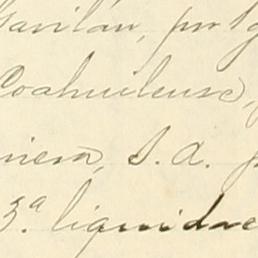 Gavilán, por
Coahuilense,
niera, S. A.
3ª. liquidac